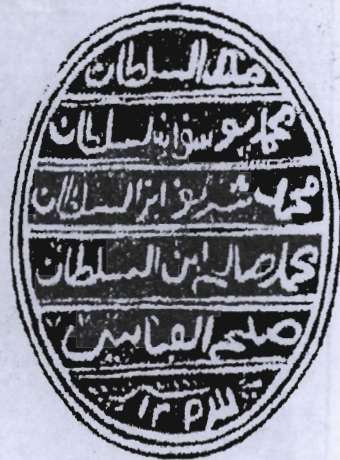 ملك السلطان
محمد يوسف ابن السلطان
محمد شريف ابن السلطان
محمد صالح ابن السلطان
صليح العباسي
سنة